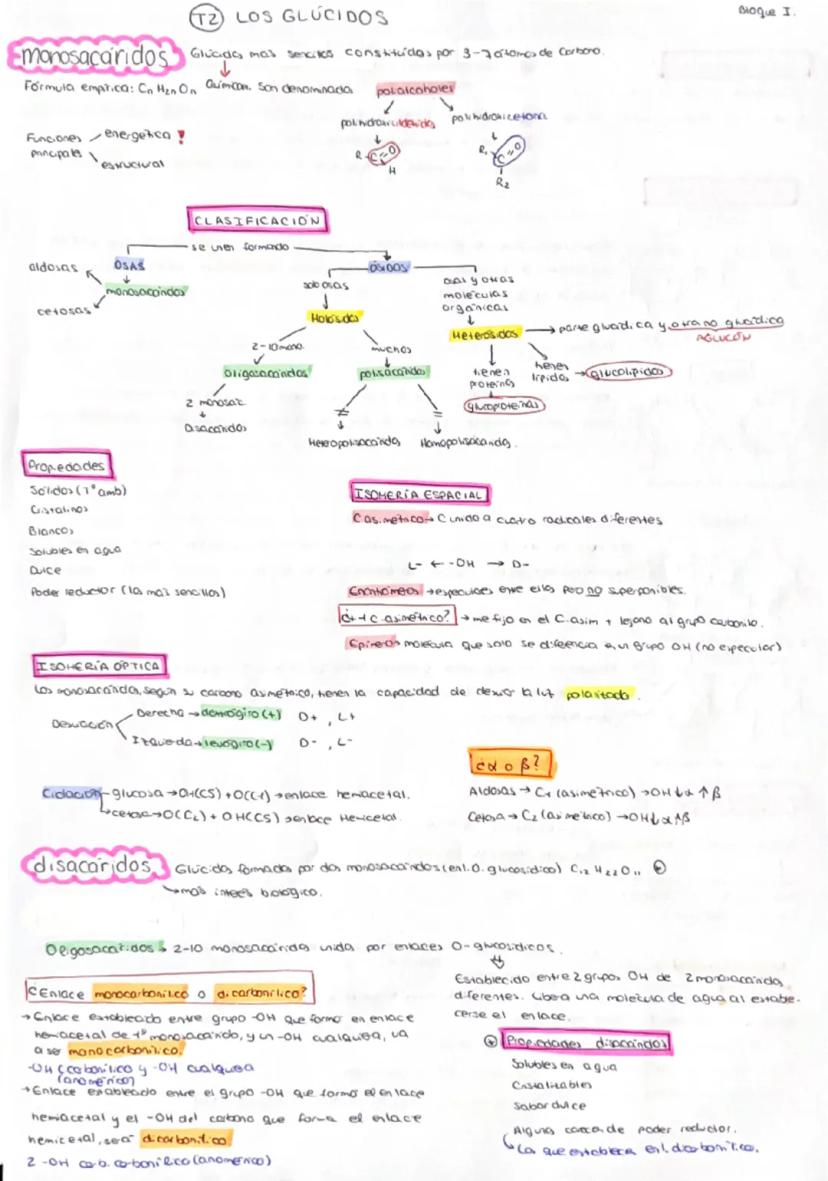 T2 LOS GLÚCIDOS
Bloque I.
monosacáridos Glúcidos más sencillos constituídos por 3-7 átomos de carbono.
Fórmula empírica: Cn H2n On Químicam. son denominados polialcoholes
polihidroxialdehídos polihidroxicetona
R - C=O H
R1 C=O R2
Funciones principales energética !
estructural
CLASIFICACIÓN
se unen formando
OSAS ÓSIDOS
aldosas
cetosas
monosacáridos
solo osas
osas y otras moléculas orgánicas
Holósidos
Heterósidos → parte glucídica y otra no glucídica
AGLUCÓN
2-10 mono.
muchos
Oligosacáridos polisacáridos
tienen proteínas
tienen lípidos → glucolípidos
glucoproteínas
2 monosac.
Disacáridos
≠ ≠
Heteropolisacáridos Homopolisacáridos.
Propiedades
Sólidos (Tº amb)
Cristalinos
Blancos
Solubles en agua
Dulce
Poder reductor (los más sencillos)
ISOMERÍA ESPACIAL
C asimétrico → C unido a cuatro radicales diferentes
L- ← -OH → D-
Enantiómeros → especulares entre ellos pero no superponibles.
¿+1 C asimétrico? → me fijo en el C asim + lejano al grupo carbonilo.
Epímeros → molécula que solo se diferencia en un grupo OH (no especular)
ISOMERÍA ÓPTICA
Los monosacáridos, según su carbono asimétrico, tienen la capacidad de desviar la luz polarizada.
Desviación Derecha → dextrógiro (+) D+, L+
Izquierda → levógiro (-) D-, L-
Ciclación glucosa → OH(C5) + O(C1) → enlace hemiacetal.
cetosa → O(C2) + OH(C5) → enlace Hemicetal.
¿α o β?
Aldosas → C1 (asimétrico) → OH ↓α ↑β
Cetosa → C2 (asimétrico) → OH ↓α ↑β
disacáridos Glúcidos formados por dos monosacáridos (enl. O. glucosídico) C12 H22 O11
→ más interés biológico.
Oligosacáridos → 2-10 monosacáridos unidos por enlaces O-glucosídicos.
Establecido entre 2 grupos OH de 2 monosacáridos
diferentes. Libera una molécula de agua al estable-
cerse el enlace.
¿Enlace monocarbonílico o dicarbonílico?
→ Enlace establecido entre grupo -OH que formó en enlace
hemiacetal de 1º monosacárido, y un -OH cualquiera, va
a ser monocarbonílico.
-OH C carbonílico y -OH cualquiera
(anomérico)
→ Enlace establecido entre el grupo -OH que formó el enlace
hemiacetal y el -OH del carbono que forma el enlace
hemicetal, será dicarbonílico
2 -OH carb. carbonílico (anomérico)
Propiedades disacáridos
Solubles en agua
Cristalizables
Sabor dulce
Alguno carece de poder reductor.
Los que establecen enl. dicarbonílico.